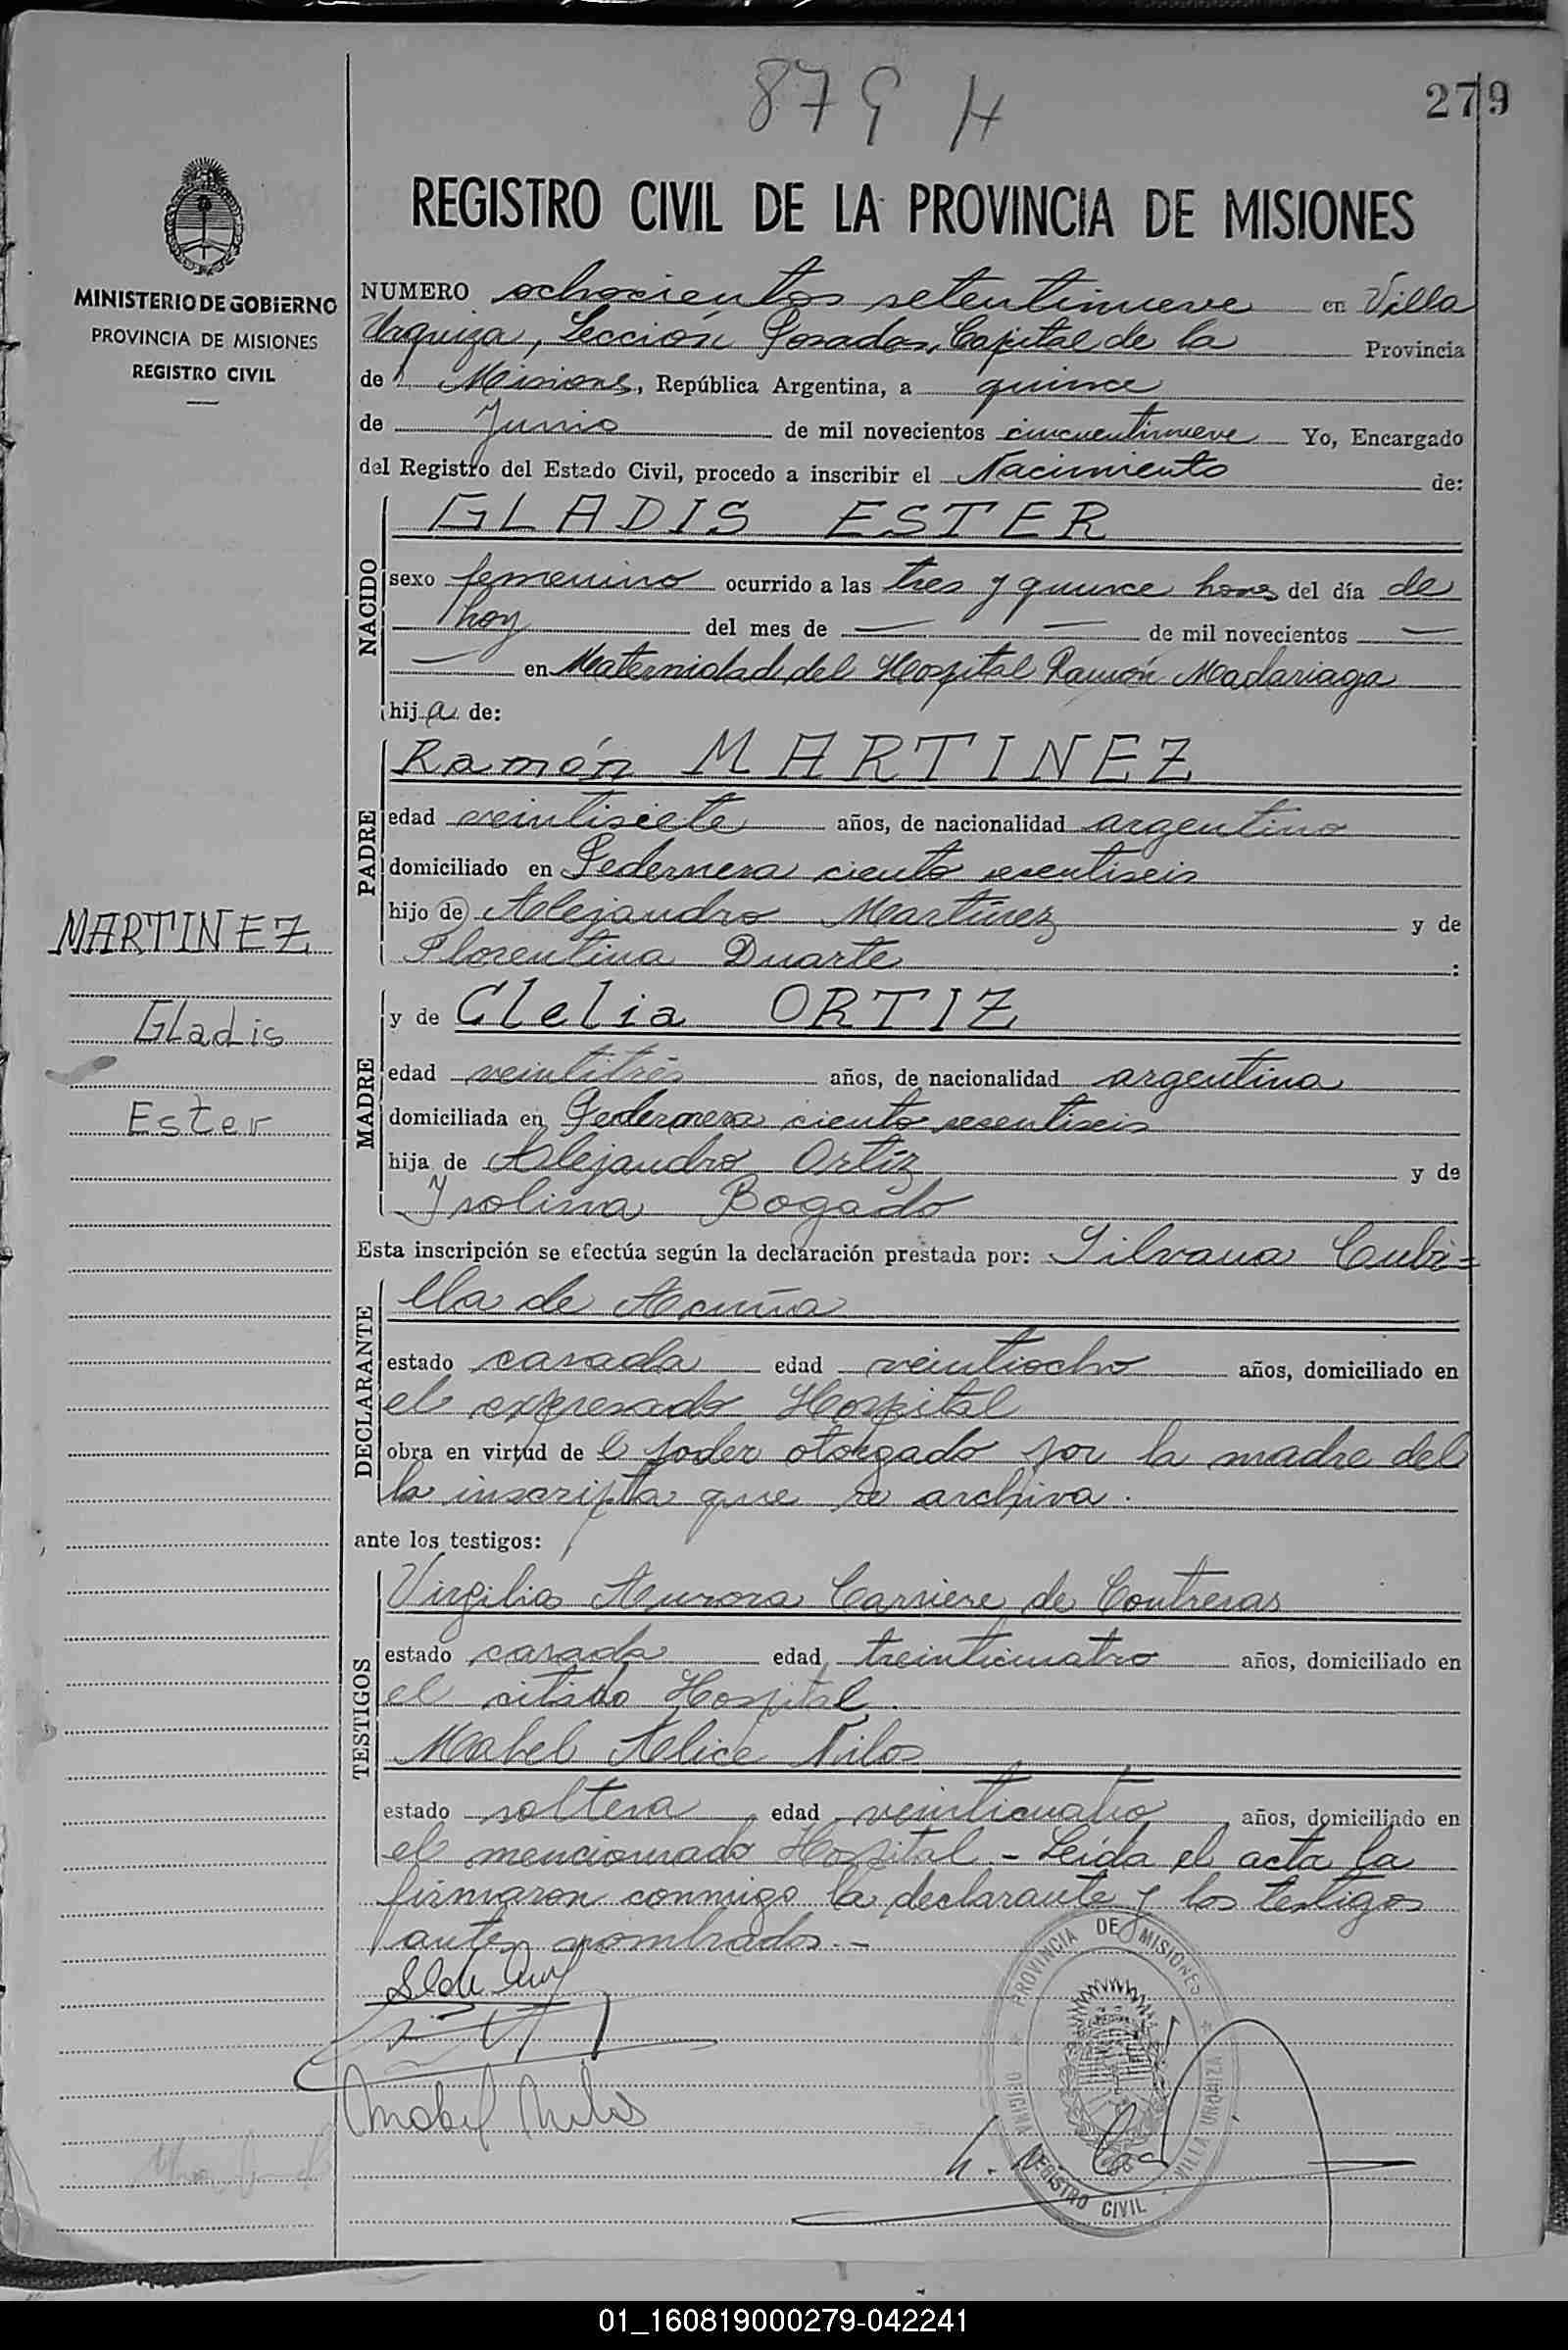 879 H
279
MINISTERIO DE GOBIERNO
PROVINCIA DE MISIONES
REGISTRO CIVIL
REGISTRO CIVIL DE LA PROVINCIA DE MISIONES
NUMERO ochocientos setentinueve en Villa
Urquiza, Sección Posadas, Capital de la Provincia
de Misiones, República Argentina, a quince
de Junio de mil novecientos cincuentinueve Yo, Encargado
del Registro del Estado Civil, procedo a inscribir el Nacimiento de:
NACIDO
GLADIS ESTER
sexo femenino ocurrido a las tres y quince horas del día de
hoy del mes de — — de mil novecientos —
— en Maternidad del Hospital Ramón Madariaga
hija de:
PADRE
Ramón MARTINEZ
edad veintisiete años, de nacionalidad argentino
domiciliado en Pedernera ciento sesentiseis
hijo de Alejandro Martínez y de
Florentina Duarte :
MARTINEZ
Gladis
Ester
MADRE
y de Clelia ORTIZ
edad veintitrés años, de nacionalidad argentina
domiciliada en Pedernera ciento sesentiseis
hija de Alejandro Ortíz y de
Isolina Bogado
Esta inscripción se efectúa según la declaración prestada por: Silvana Cubi=
DECLARANTE
lla de Acuña
estado casada edad veintiocho años, domiciliado en
el expresado Hospital
obra en virtud de l poder otorgado por la madre del
la inscripta que se archiva.
ante los testigos:
TESTIGOS
Virgilia Aurora Carriere de Contreras
estado casada edad treinticuatro años, domiciliado en
el citado Hospital.
Mabel Alice Nilos
estado soltera edad veinticuatro años, domiciliado en
el mencionado Hospital.- Leída el acta la
firmaron conmigo la declarante y los testigos
antes nombrados.-
Mabel Nilos
PROVINCIA DE MISIONES
OFICINA REGISTRO CIVIL VILLA URQUIZA
01_160819000279-042241